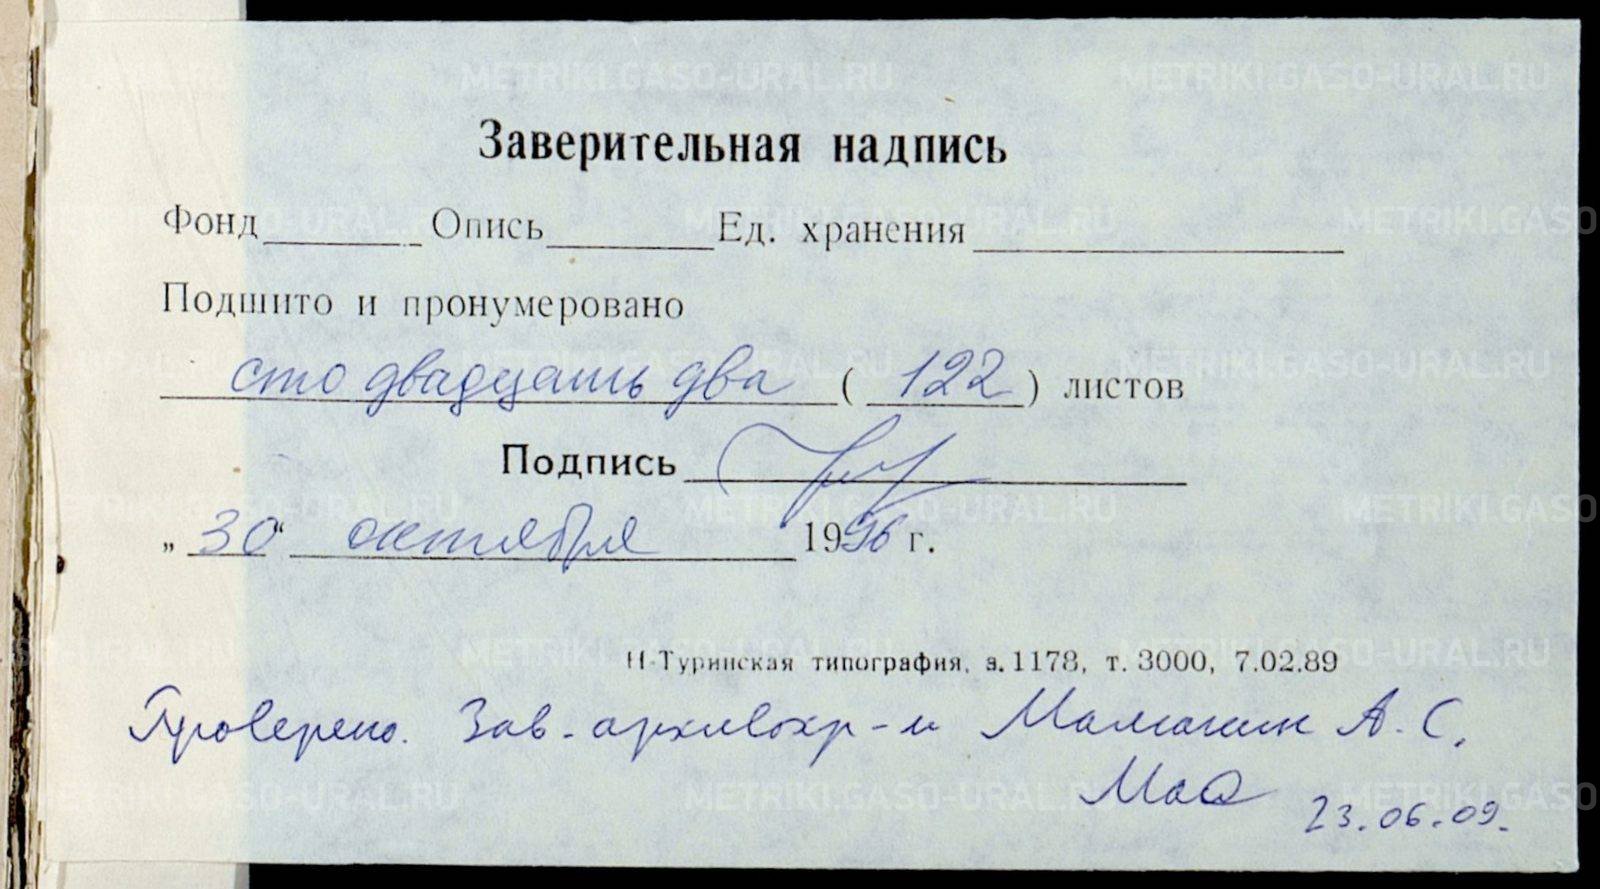 Заверительная надпись
Фонд______Опись______Ед. хранения______
Подшито и пронумеровано
сто двадцать два ( 122 ) листов
Подпись
„ 30 “ октября 1996 г.
Н-Туринская типография, з. 1178, т. 3000, 7.02.89
Проверено. Зав. архивохр-м А. С.
23.06.09.
METRIKI.GASO-URAL.RU